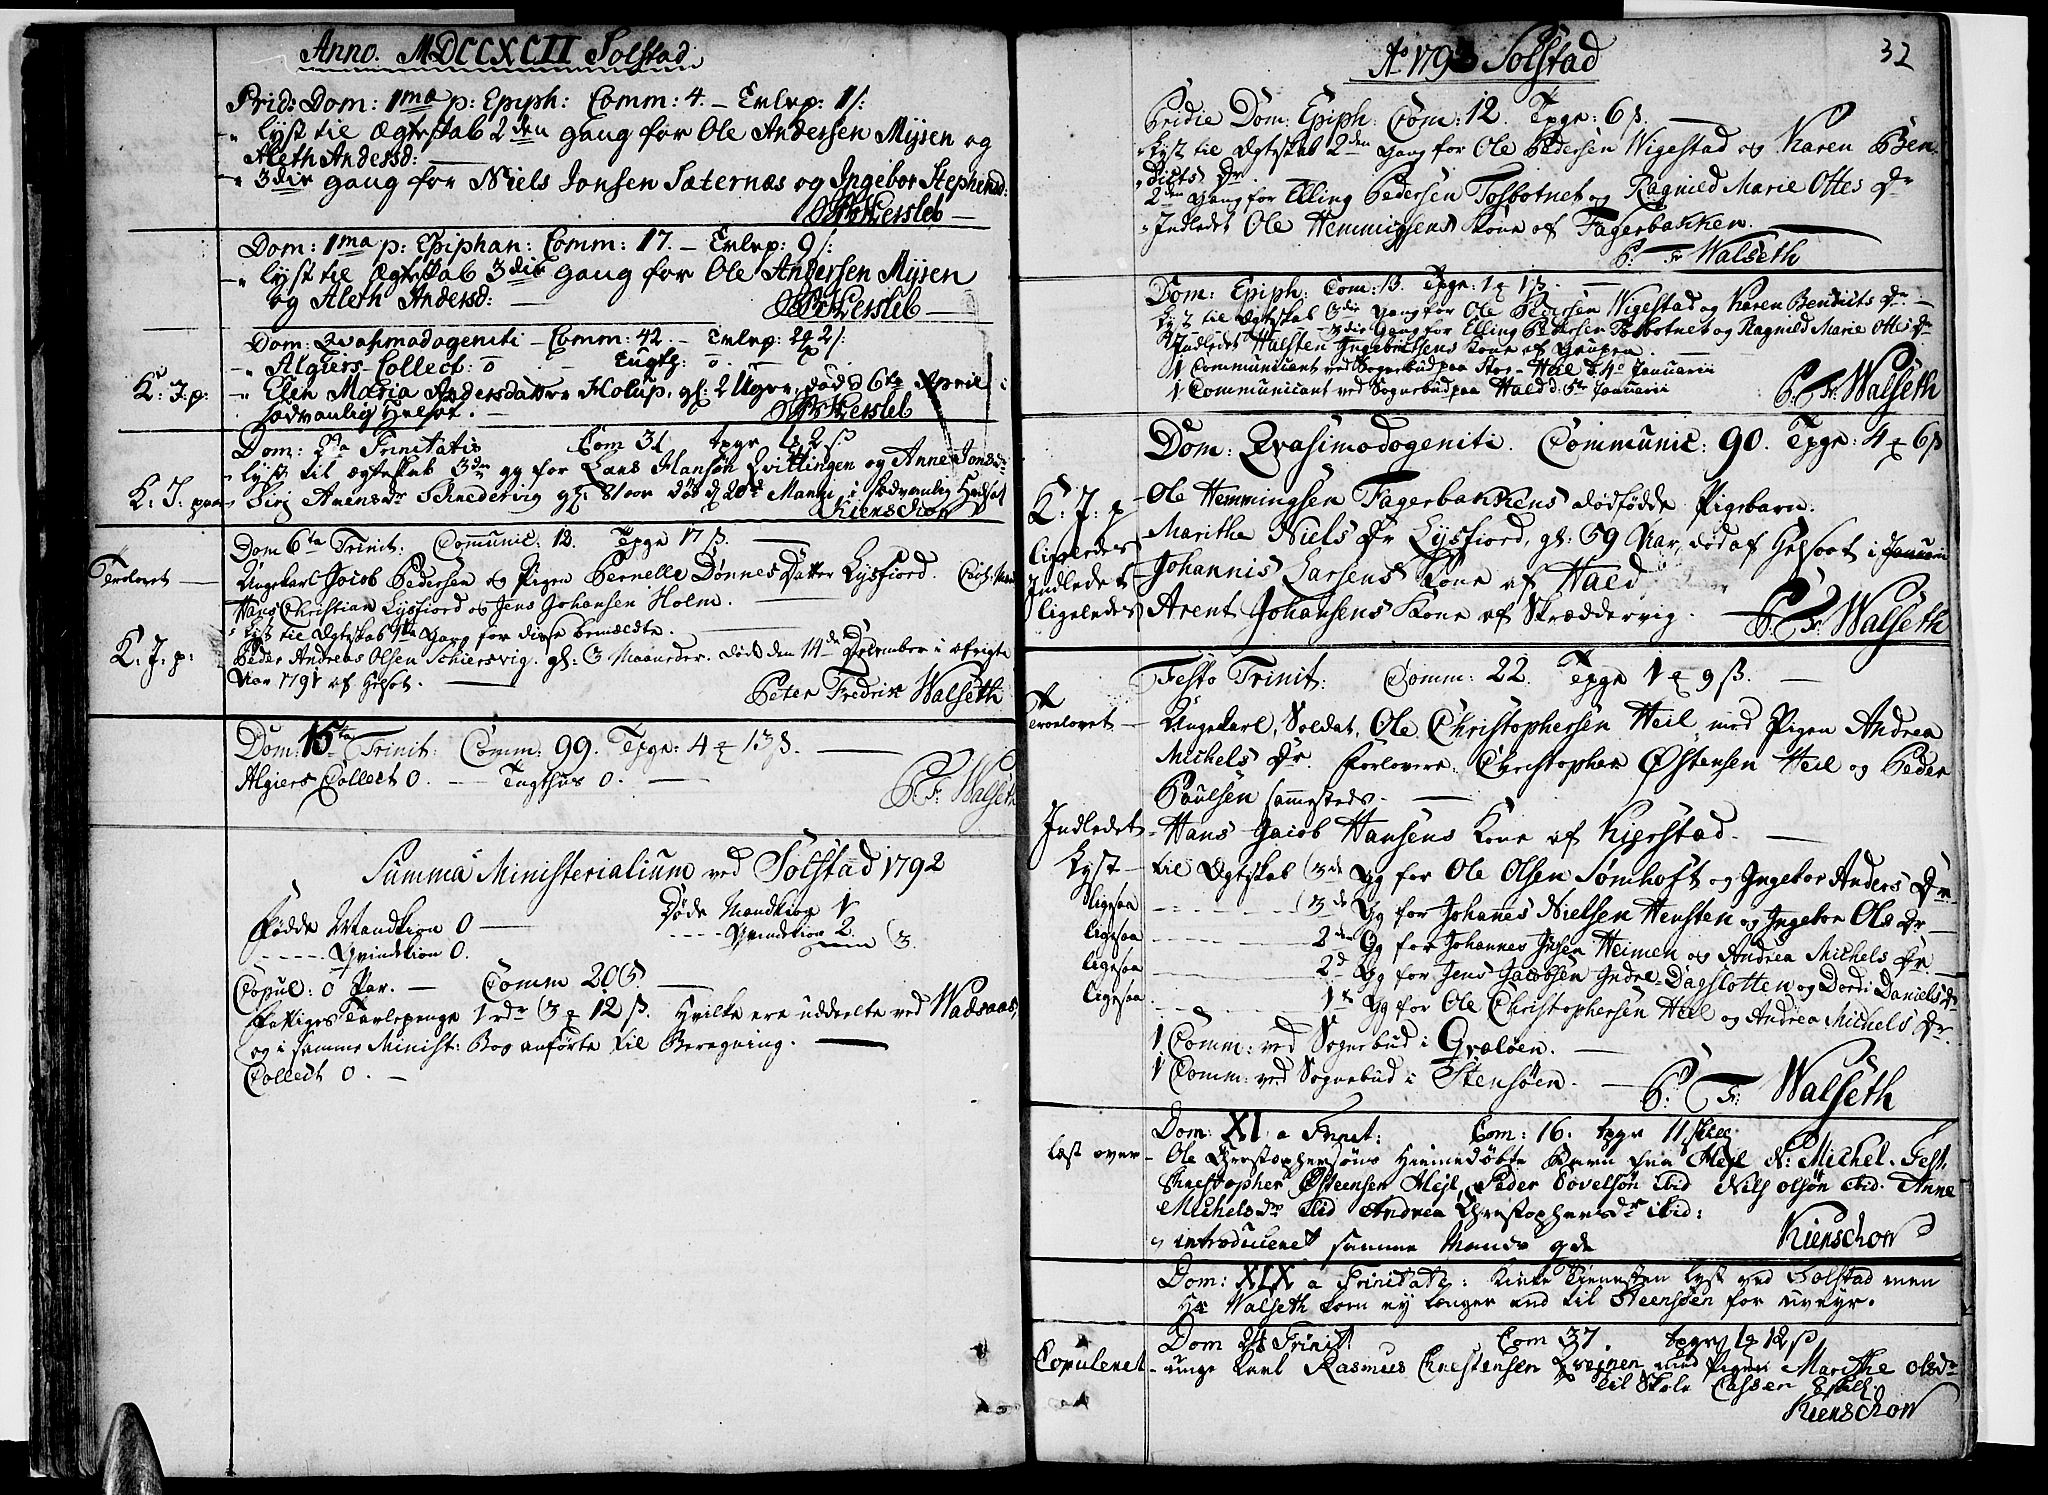 Anno. MDCCXCII Solstad
Prid: Dom: 1ma p: Epiph: Comm: 4. –
lyst til Ægteskab 2den gang for Ole Andersen Mysen og
Aleth Andersd:
3die gang for Niels Jonsen Sæternæs og Ingebor Stephensd:
Dom: 1ma p: Epiphan: Comm: 17. – 9 ß:
lyst til Ægteskab 3die gang for Ole Andersen Mysen
og Aleth Andersd:
Dom: Qvasimodogeniti – Comm: 42. – 2 ß:
Algiers-Collect: 0 – Tugth: 0. –
K: J: p: Elen Maria Andersdatter Holup, gl: 2 Uger, død d: 6te April i
sædvanlig Helsot. –
Dom: 2da Trinitatis Com 31 tpge 2 ß
lyst til ægteskab 3de gg for Lars Hansøn Qvitlingen og Anne Jonsd:
K: J: paa Schredervig gl: 81 aar død d 20d Martii i sædvanlig Helsot
Kienschow
Dom 6ta Trinit: Communic: 12. Tpge 17 ß. –
Trolovet – Ungekarl Jacob Pedersen og Pigen Pernelle Dønnes Datter Lysfiord.
Hans Christian Lysfiord og Jens Johansen Holm. –
lyst til Ægteskab 1ste Gang for disse bemeldte. –
K: J: p: Peder Andreas Olsen Schiersvig. gl: 3 Maaneder. døde den 14de December i afvigte
Aar 1791 af Helsot. –
Peter Fredrik Walseth
Dom: 15ta Trinit: Comm: 99. Tpge: 4 13 ß. –
Algiers Collect 0. – Tugthus 0. –
P: Fr: Walseth
Summa Ministerialium ved Solstad 1792
Fødde Mandkion 0 – Døde Mandkiøn 1
Qvindekion 0. Qvindekion 2.
3.
Copul: 0 Par. – Comm 205. –
Fattiges Tavlepenge 1 rdr 3 12 ß. Hvilke ere uddeelte ved Wadsaas,
og i samme Minist: Bog anførte til Beregning. –
Collect 0. –
Ao 1793 Solstad
32
Pridie Dom: Epiph: Com: 12. Tpge: 6 ß. –
Lyst til Ægteskab 2den Gang for Ole Pedersen Wigestad og Karen Ben-
dicts Dr
2den Gang for Elling Pedersen Tosbotnet og Ragnild Marie Ottes Dr
Indledet Ole Hemmingsens Kone af Fagerbakken.
P: Fr Walseth
Dom: Epiph: Com: 13. Tpge: 1 1 ß. –
Lyst til Ægteskab 3die Gang for Ole Pedersen Wigestad og Karen Bendicts Dr –
3die Gang for Elling Pedersen Tosbotnet og Ragnild Marie Ottes Dr
Indledet Halsten Ingebretsens Kone af
1 Communicant ved Sognebud paa Stor-Heil d: 4de Januarii
1 Communicant ved Sognebud paa Haed d: 5te Januarii
P: Fr: Walseth
Dom: Qvasimodogeniti. Communic: 90. Tpge: 4 6 ß
K: J: p – Ole Hemmingsen Fagerbakkens dødfødde Pigebarn.
ligeledes Marithe Niels Dr Lysfiord, gl: 59 Aar, død af Helsoot i Januari
Indledet Johannis Larsens Kone af Haed
ligeledes Arent Johansens Kone af Skræddervig. –
P: Fr: Walseth
Festo Trinit: Comm: 22. Tpge 1 9 ß. –
Troelovet – Ungekarl, Soldat, Ole Christophersen Heil, med Pigen Andrea
Michels Dr. Forlovere: Christopher Østensen Heil og Peder
Paulsen sammesteds. –
Indledet – Hans Jacob Hansens Kone af Kierstad. –
Lyst – til Ægteskab 3de Gg for Ole Olsen Sømhoft og Ingebor Anders Dr
ligesaa 3de Gg for Johannes Nielsen Hensten og Ingebor Ols Dr –
ligesaa 2de Gg for Johannes Jensen Heimen og Andrea Michels Dr.
ligesaa 2d Gg for Jens Jacobsen Indre-Dagslotten og Dordi Daniels Dr
ligesaa 1te Gg for Ole Christophersen Heil og Andrea Michels Dr.
1 Comm: ved Sognebud i Græløen. –
1 Comm: ved Sognebud i Stensøen. –
P: Fr: Walseth
Dom: XI a Trinit: Com: 16. tpge 11 skill:
læst over – Ole Christophersøns hiemmedøbte Barn fra Heil N: Michel. Test.
Christopher Østensen Hejl, Peder Povelsøn ibid Nils Olsøn ibid. Anne
Michelsdr ibid Andrea Christophersdr ibid:
introduceret samme Mands qde
Kienschow
Dom: XIX a Trinitat: Kirke Tienesten lyst ved Solstad men
Hr Walseth kom ej længer end til Steensøen for uveyr.
Dom 24 Trinit: Com 37. tpge 1 12 ß
Copuleret – unge karl Rasmus Christensen med Pigen Marithe Olsdr
til Skole Cassen 8 skill:
Kienschow